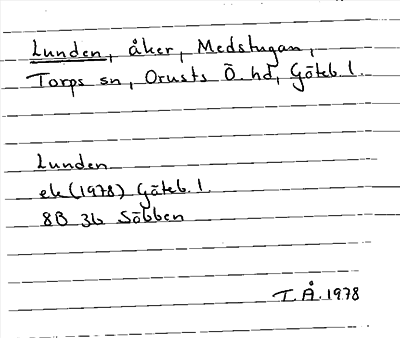 Lunden, åker, Medstugan,
Torps sn, Orusts Ö. hd, Göteb. l.
Lunden
ek (1978) Göteb. l.
8B 3b Säbben
T.Å. 1978